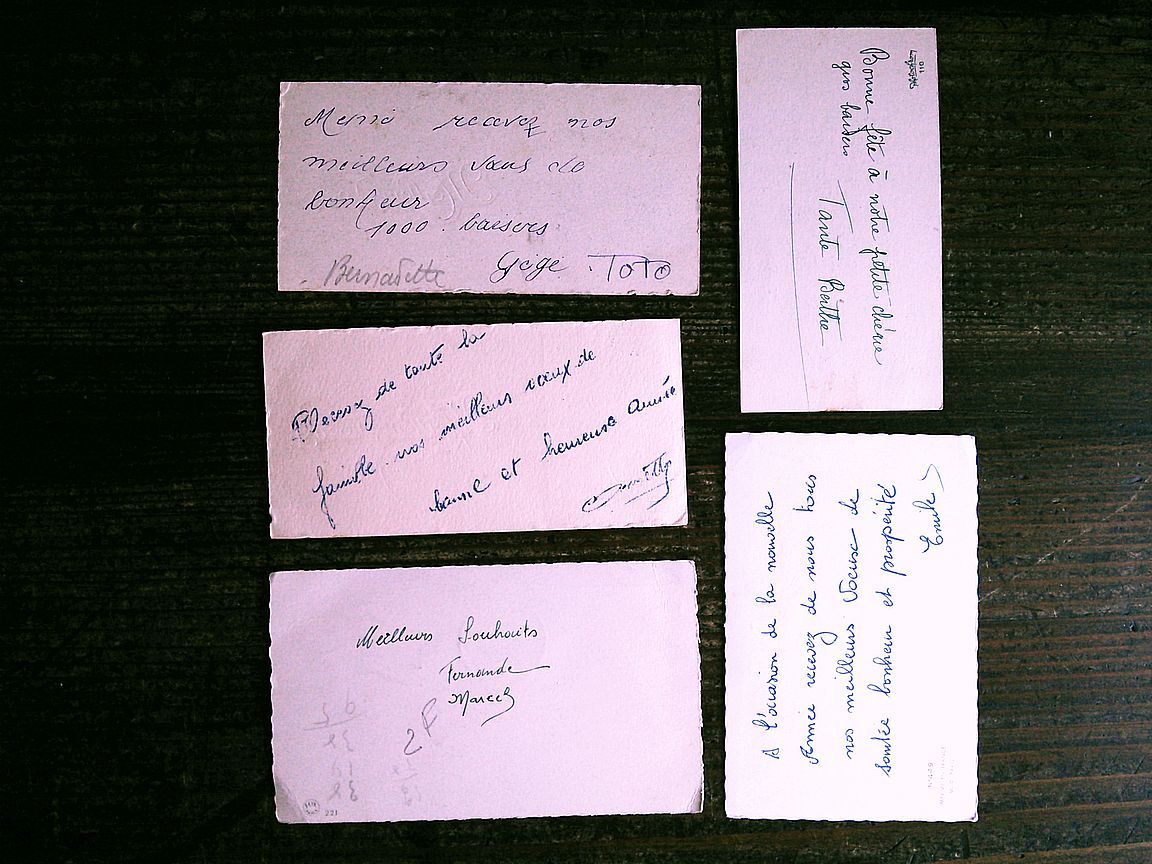 Mémé recevez nos
meilleurs vœux de
bonheur
1000 baisers
Bernadette Gégé TOTO
Recevez de toute la
famille nos meilleurs vœux de
bonne et heureuse année
Meilleurs Souhaits
Fernande
Marcel
2F
221
110
Bonne fête à notre petite chérie
gros baisers
Tante Berthe
A l'occasion de la nouvelle
Année recevez de nous tous
nos meilleurs Voeux de
santée bonheur et prospérité
Emile